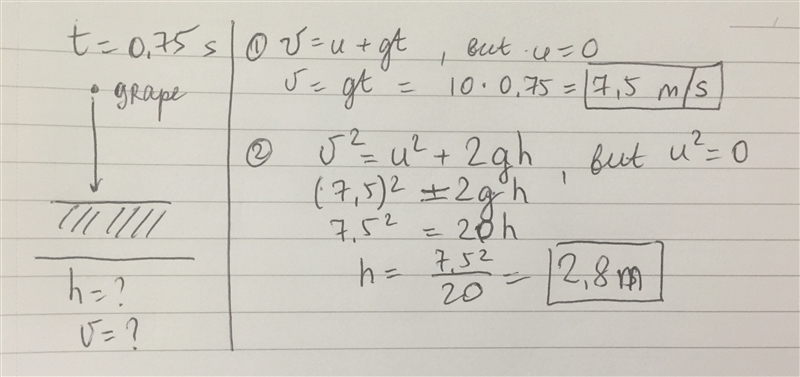 t = 0,75 s
grape
h = ?
v = ?
① v = u + gt , but u = 0
v = gt = 10 · 0,75 = 7,5 m/s
② v² = u² + 2gh , but u² = 0
(7,5)² = 2gh
7,5² = 20h
h = 7,5²/20 = 2,8 m